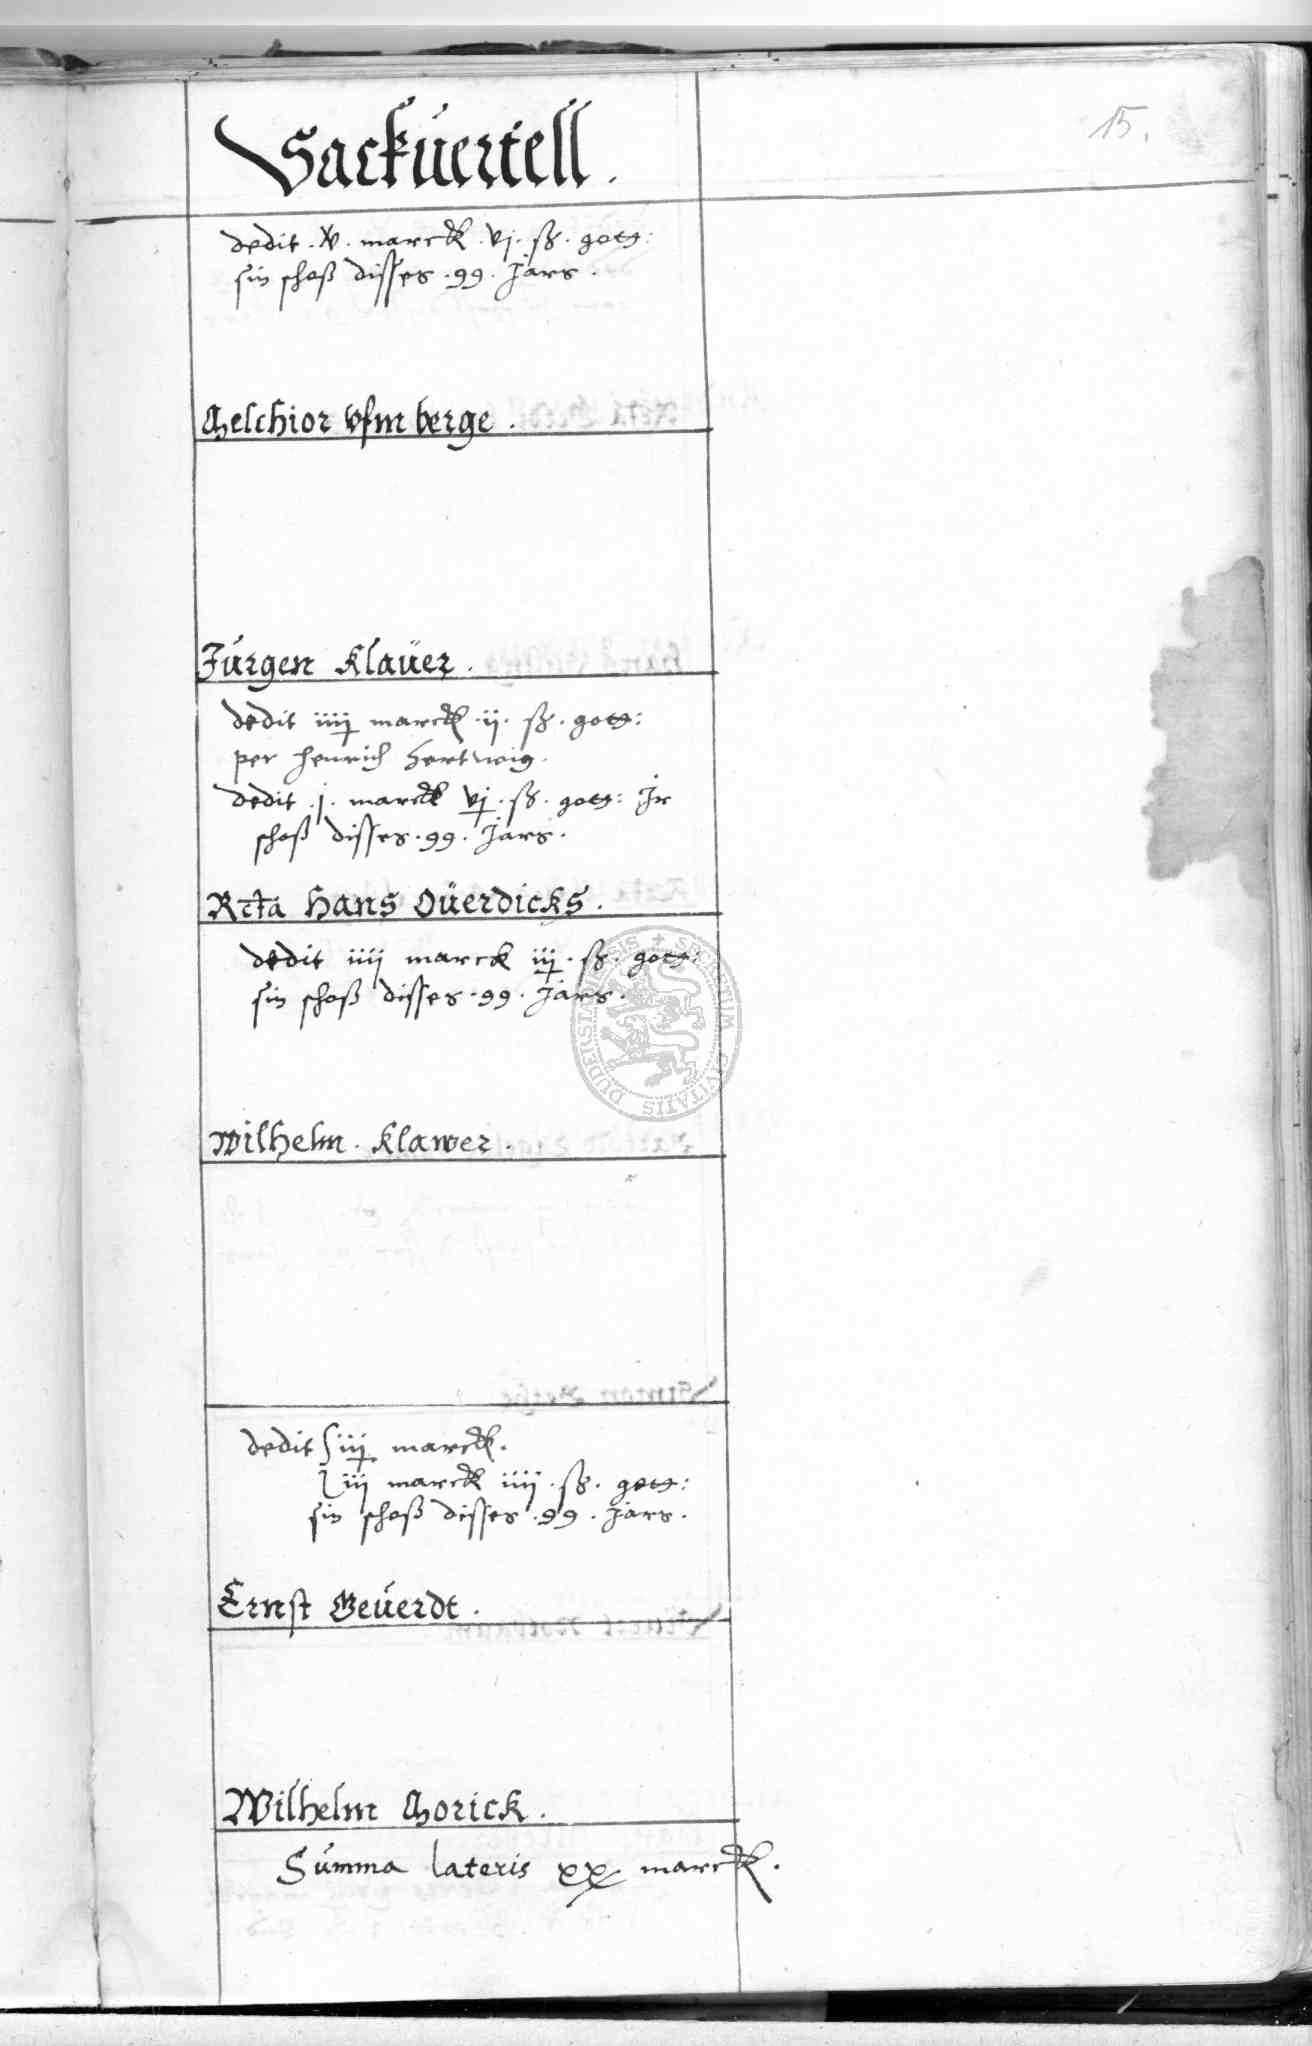 15.
Sackuertell.
dedit . v . marck . vj . ß . gott:
sin schoß disses . 99 . Jars .
Melchior vfm berge .
Jürgen Klauer .
dedit iiij marck . ij . ß . gott:
per henrich hertwig .
dedit . j . marck vj . ß . gott: Jr
schoß disses . 99 . Jars .
Rcta Hans Ouerdicks .
dedit iiij marck iij . ß . gott:
sin schoß disses . 99 . Jars .
Wilhelm . Klawer .
dedit iij marck .
iij marck iiij . ß . gott:
sin schoß disses . 99 . Jars .
Ernst Geuerdt .
Wilhelm Morick .
Summa lateris xx marck .